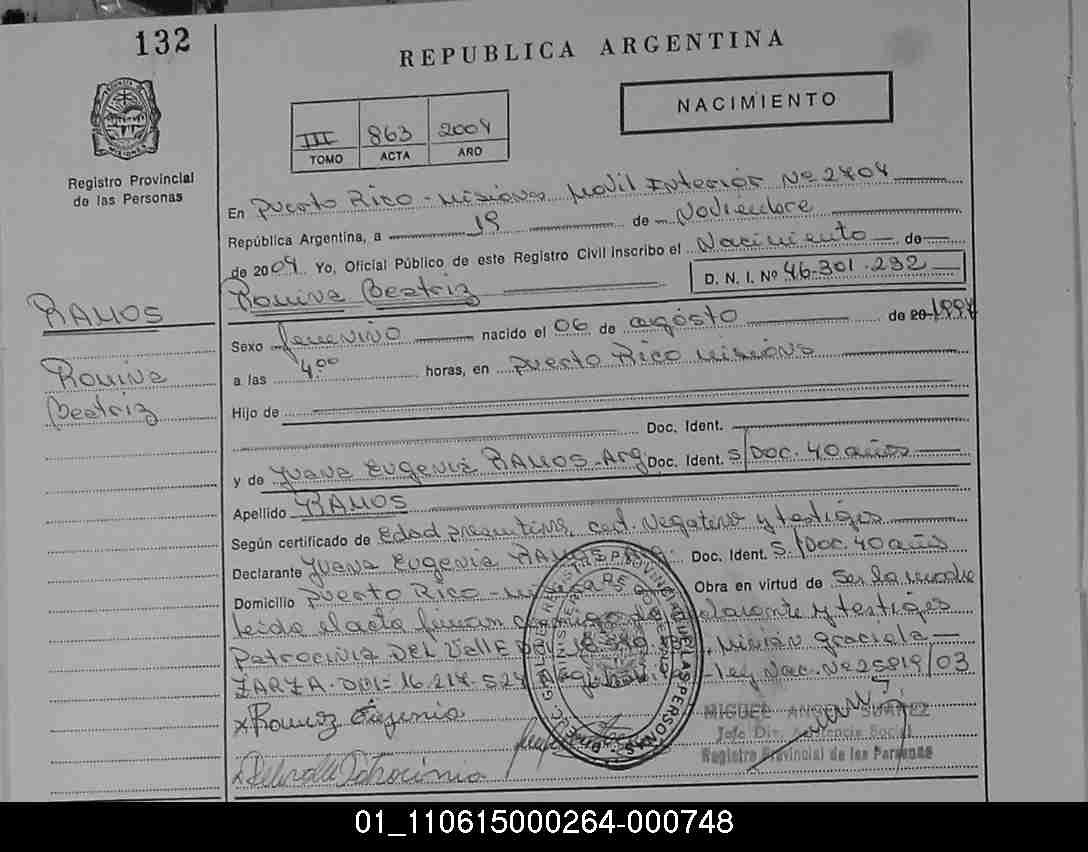 132
REPUBLICA ARGENTINA
NACIMIENTO
III 863 2004
TOMO ACTA ARO
Registro Provincial
de las Personas
En Puerto Rico - Misiones Movil Interior Nº 2404
República Argentina, a 18 de Noviembre
de 2004 Yo, Oficial Público de este Registro Civil inscribo el Nacimiento de
Romina Beatriz D. N. I. Nº 46.301.232
RAMOS
Romina
Beatriz
Sexo femenino nacido el 06 de agosto de 20 1994
a las 4.00 horas, en Puerto Rico Misiones
Hijo de
Doc. Ident.
y de Juana Eugenia RAMOS-Arg Doc. Ident. S/Doc. 40 años
Apellido RAMOS
Según certificado de Edad presuntiva, cert. negativo y testigos
Declarante Juana Eugenia RAMOS Doc. Ident. S/Doc. 40 años
Domicilio Puerto Rico - Obra en virtud de Ser la madre
leida el acta firman conmigo declarante y testigos
Patrocinia DEL Valle Mirian graciela
ZARZA. DNI= 16.214.524 ley Nac. Nº 25819/03
x Ramoz Eugenia
MIGUEL ANGEL SUAREZ
Jefe Div. Asistencia Social
Registro Provincial de las Personas
x Delvalle Patrocinia
01_110615000264-000748